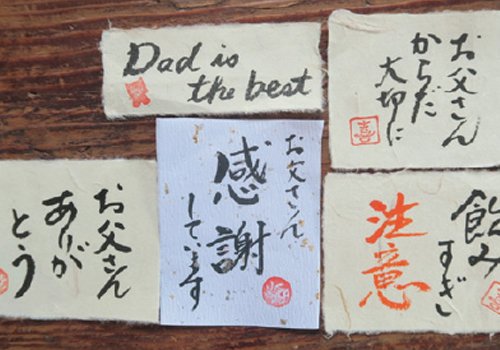 Dad is
the best
お父さん
からだ
大切に
お父さん
ありが
とう
お父さん
感謝
しています
飲み
すぎ
注意
喜